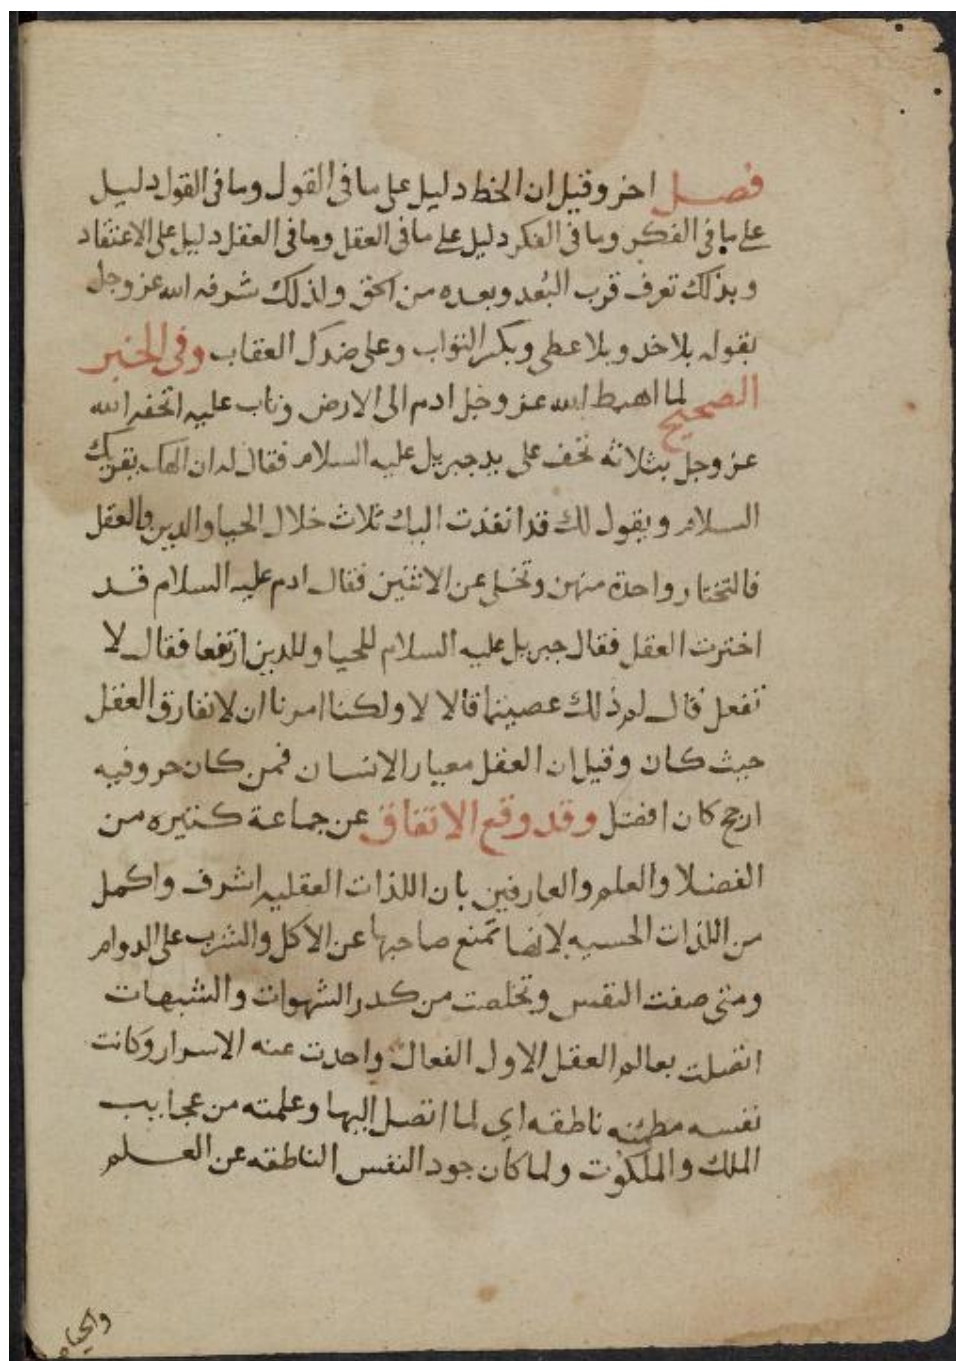 فصل اخر وقيل ان الخط دليل على ما فى القول وما فى القول دليل
على ما فى الفكر وما فى الفكر دليل على ما فى العقل وما فى العقل دليل على الاعتقاد
وبذلك تعرف قرب البُعد وبعده من الحق ولذلك شرفه الله عز وجل
بقوله بلا خد وبلا عطى وبك الثواب وعلى ضدك العقاب وفى الخبر
الصحيح لما اهبط الله عز وجل ادم الى الارض وتاب عليه اتحفه الله
عز وجل بثلاثه تحف على يد جبريل عليه السلام فقال له ان الهك يقريك
السلام ويقول لك قد انفذت اليك ثلاث خلال الحيا والدين والعقل
فالتختار واحدة منهن وتخلى عن الاثنين فقال ادم عليه السلام قد
اخترت العقل فقال جبريل عليه السلام للحيا وللدين ارتفعا فقال لا
نفعل قال لم ذلك عصيتما قالا لا ولكنا امرنا ان لا نفارق العقل
حيث كان وقيل ان العقل معيار الانسان فمن كان حروفيه
ارجح كان افضل وقد وقع الاتفاق عن جماعة كثيره من
الفضلا والعلم والعارفين بان اللذات العقليه اشرف واكمل
من اللذات الحسيه لانها تمنع صاحبها عن الاكل والشرب على الدوام
ومتى صفت النفس وتخلصت من كدر الشهوات والشبهات
اتصلت بعالم العقل الاول الفعال واحدت عنه الاسرار وكانت
نفسه مطمئنه ناطقه اي لما اتصل إليها وعلمته من عجايب
الملك والملكوت ولما كان جود النفس الناطقه عن العلم
والحياه